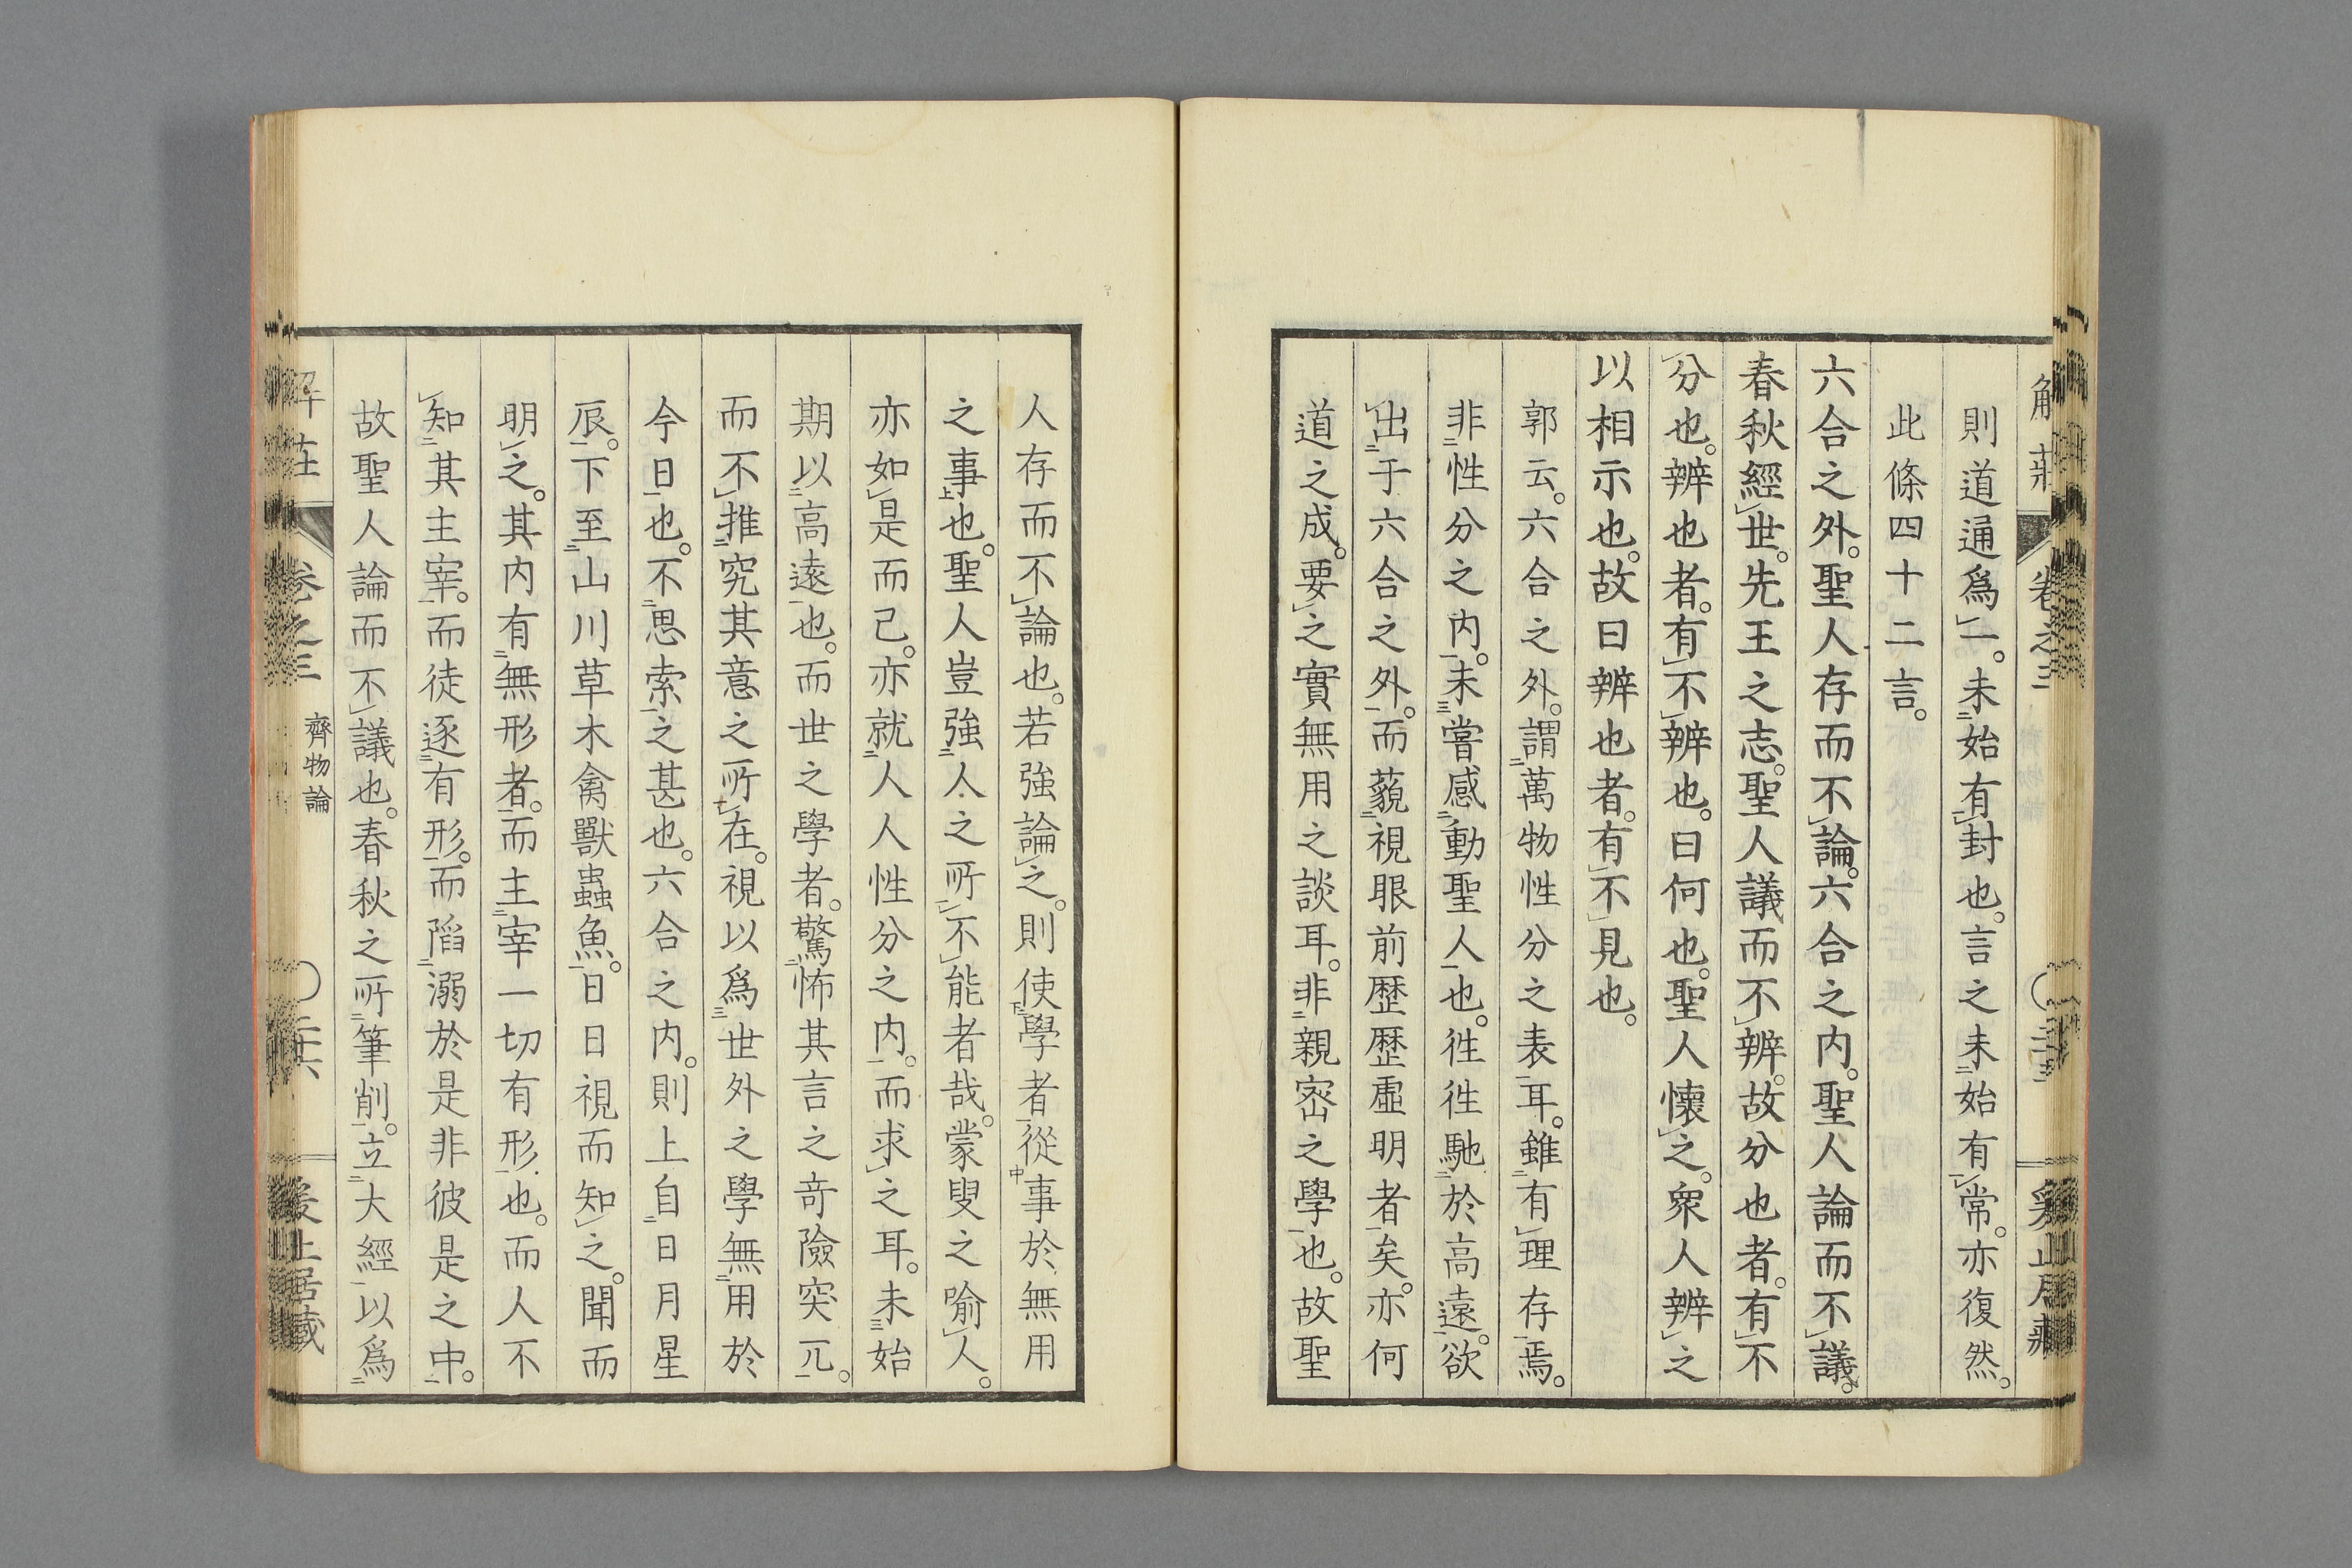 則道通爲一。未始有封也。言之未始有常。亦復然。
此條四十二言。
六合之外。聖人存而不論。六合之内。聖人論而不議。
春秋經世。先王之志。聖人議而不辨。故分也者。有不
分也。辨也者。有不辨也。曰何也。聖人懷之。衆人辨之
以相示也。故曰辨也者。有不見也。
郭云。六合之外。謂萬物性分之表耳。雖有理存焉。
非性分之内。未嘗感動聖人也。徃徃馳於高遠。欲
出于六合之外。而藐視眼前歴歴虛明者矣。亦何
道之成。要之實無用之談耳。非親密之學也。故聖
人存而不論也。若強論之。則使學者從事於無用
之事也。聖人豈強人之所不能者哉。蒙叟之喻人。
亦如是而已。亦就人人性分之内。而求之耳。未始
期以高遠也。而世之學者。驚怖其言之奇險突兀。
而不推究其意之所在。視以爲世外之學無用於
今日也。不思索之甚也。六合之内。則上自日月星
辰。下至山川草木禽獸蟲魚。日日視而知之。聞而
明之。其内有無形者。而主宰一切有形也。而人不
知其主宰。而徒逐有形。而陷溺於是非彼是之中。
故聖人論而不議也。春秋之所筆削。立大經以爲
解莊
卷之三
齊物論